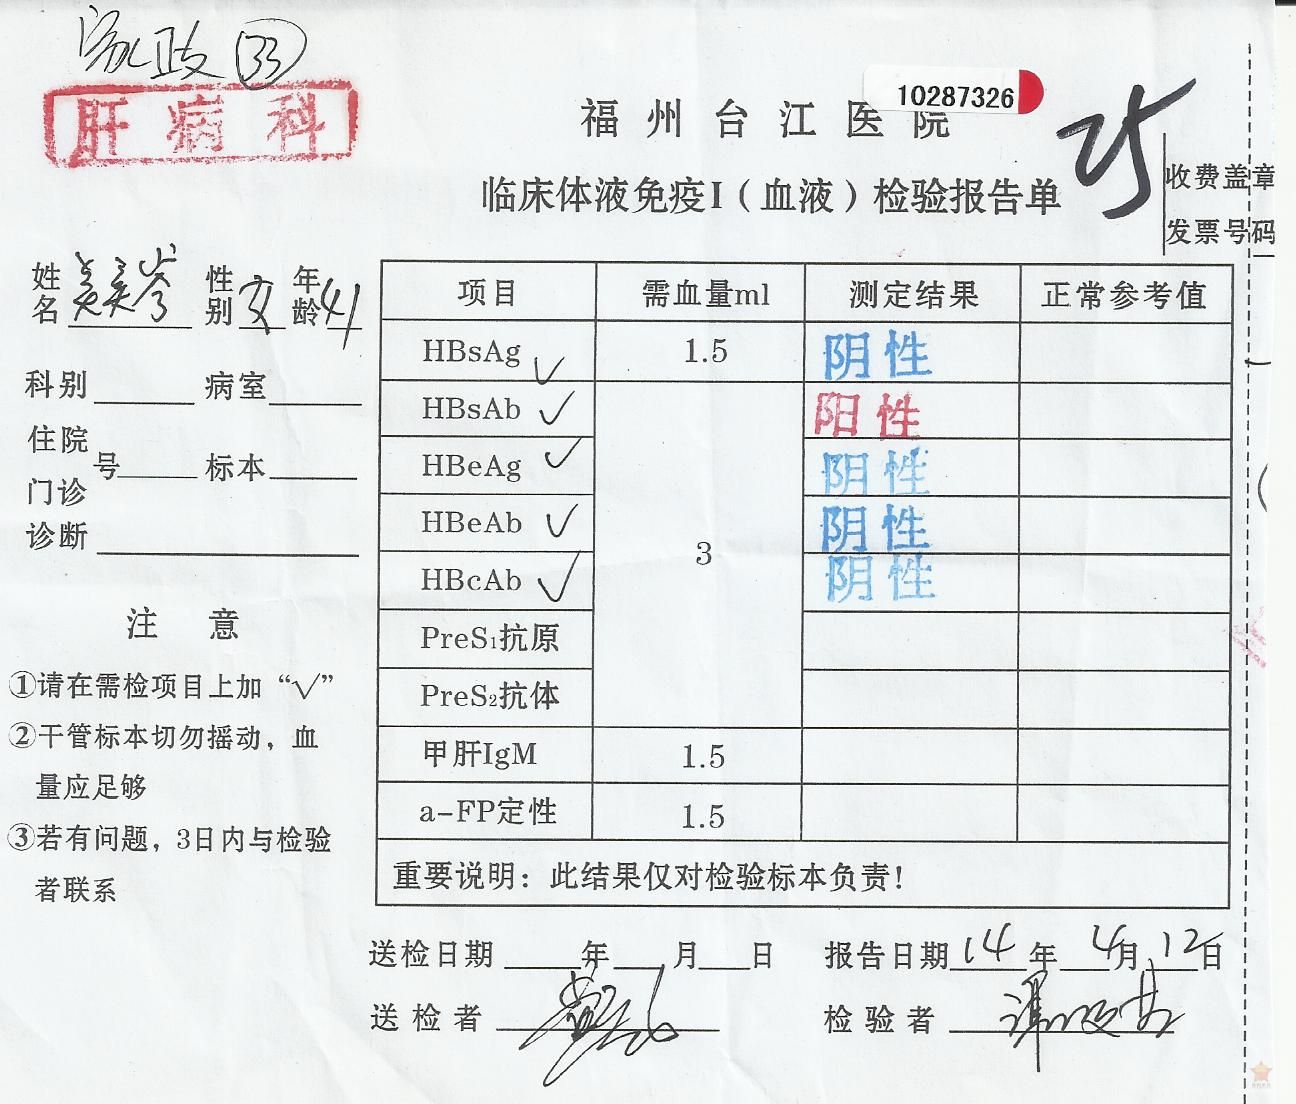 家政 33
肝病科
10287326
福州台江医院
25
临床体液免疫I(血液)检验报告单
收费盖章
发票号码
姓名 性别 女 年龄 41
科别 病室
住院
门诊 号 标本
诊断
注 意
①请在需检项目上加“√”
②干管标本切勿摇动，血
量应足够
③若有问题，3日内与检验
者联系
项目 需血量ml 测定结果 正常参考值
HBsAg √ 1.5 阴性
HBsAb √ 3 阳性
HBeAg √ 阴性
HBeAb √ 阴性
HBcAb √ 阴性
PreS1抗原
PreS2抗体
甲肝IgM 1.5
a-FP定性 1.5
重要说明：此结果仅对检验标本负责！
送检日期 年 月 日 报告日期 14 年 4月 12日
送检者 检验者